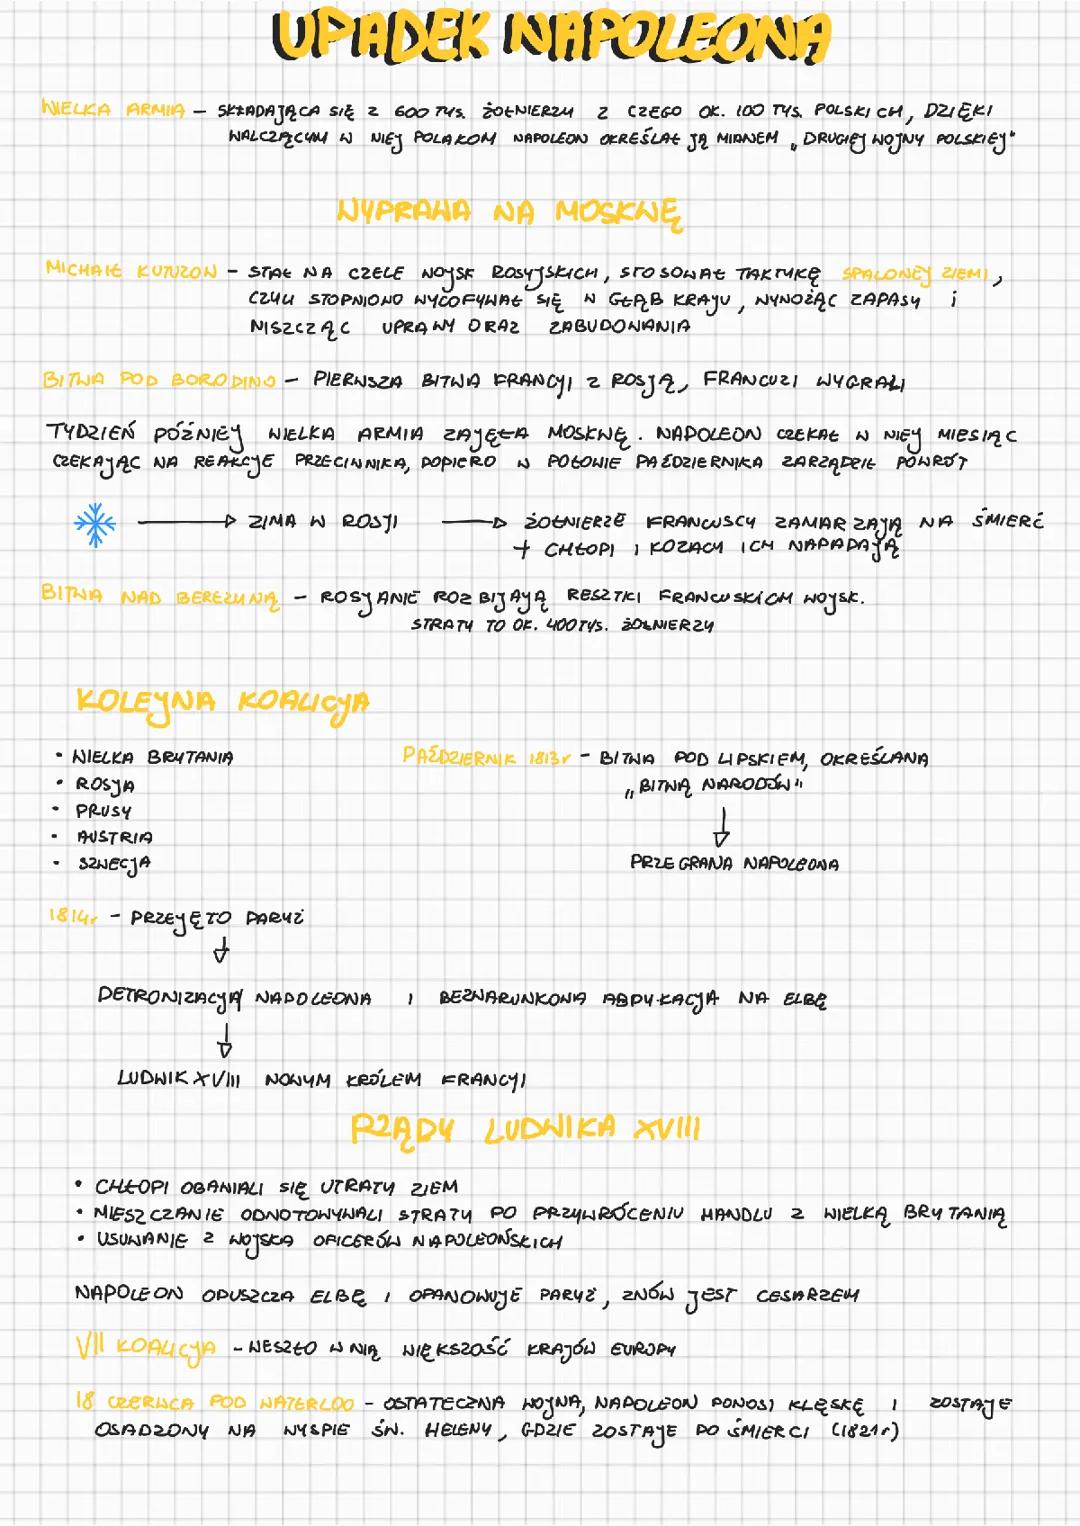 UPADEK NAPOLEONA
WIELKA ARMIA – SKŁADAJĄCA SIĘ Z 600 TYS. ŻOŁNIERZY Z CZEGO OK. 100 TYS. POLSKICH, DZIĘKI
WALCZĄCYM W NIEJ POLAKOM NAPOLEON OKREŚLAŁ JĄ MIANEM „DRUGIEJ WOJNY POLSKIEJ"
WYPRAWA NA MOSKWĘ
MICHAIŁ KUTUZOW – STAŁ NA CZELE WOJSK ROSYJSKICH, STOSOWAŁ TAKTYKĘ SPALONEJ ZIEMI,
CZYLI STOPNIOWO WYCOFYWAŁ SIĘ W GŁĄB KRAJU, WYWOŻĄC ZAPASY i
NISZCZĄC UPRAWY ORAZ ZABUDOWANIA
BITWA POD BORODINO – PIERWSZA BITWA FRANCJI Z ROSJĄ, FRANCUZI WYGRALI
TYDZIEŃ PÓŹNIEJ WIELKA ARMIA ZAJĘŁA MOSKWĘ. NAPOLEON CZEKAŁ W NIEJ MIESIĄC
CZEKAJĄC NA REAKCJE PRZECIWNIKA, DOPIERO W POŁOWIE PAŹDZIERNIKA ZARZĄDZIŁ POWRÓT
ZIMA W ROSJI ŻOŁNIERZE FRANCUSCY ZAMARZAJĄ NA ŚMIERĆ
+ CHŁOPI I KOZACY ICH NAPADAJĄ
BITWA NAD BEREZYNĄ – ROSJANIE ROZBIJAJĄ RESZTKI FRANCUSKICH WOJSK.
STRATY TO OK. 400TYS. ŻOŁNIERZY
KOLEJNA KOALICJA
• WIELKA BRYTANIA
• ROSJA
• PRUSY
• AUSTRIA
• SZWECJA
PAŹDZIERNIK 1813r – BITWA POD LIPSKIEM, OKREŚLANA
„BITWĄ NARODÓW"
PRZEGRANA NAPOLEONA
1814r – PRZEJĘTO PARYŻ
DETRONIZACJA NAPOLEONA I BEZWARUNKOWA ABDYKACJA NA ELBĘ
LUDWIK XVIII NOWYM KRÓLEM FRANCJI
RZĄDY LUDWIKA XVIII
• CHŁOPI OBAWIALI SIĘ UTRATY ZIEM
• MIESZCZANIE ODNOTOWYWALI STRATY PO PRZYWRÓCENIU HANDLU Z WIELKĄ BRYTANIĄ
• USUWANIE Z WOJSKA OFICERÓW NAPOLEOŃSKICH
NAPOLEON OPUSZCZA ELBĘ I OPANOWUJE PARYŻ, ZNÓW JEST CESARZEM
VII KOALICJA – WESZŁO W NIĄ WIĘKSZOŚĆ KRAJÓW EUROPY
18 CZERWCA POD WATERLOO – OSTATECZNA WOJNA, NAPOLEON PONOSI KLĘSKĘ I ZOSTAJE
OSADZONY NA WYSPIE ŚW. HELENY, GDZIE ZOSTAJE DO ŚMIERCI (1821r)